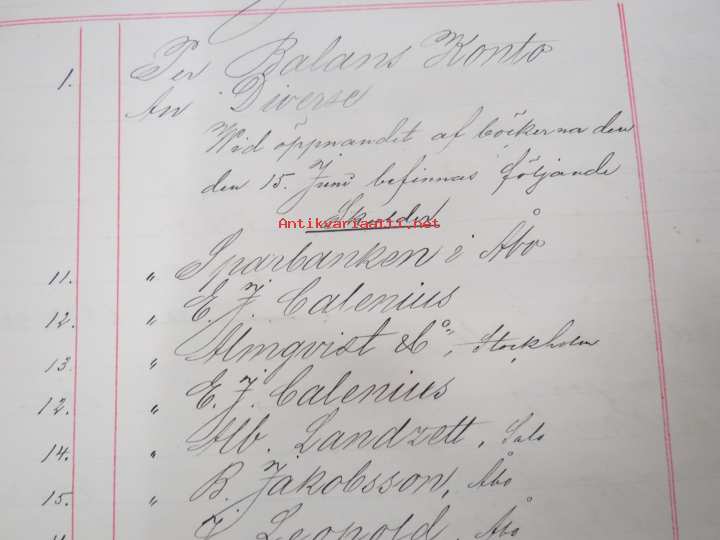 1. Per Balans Konto
An Diverse
Wid öppnandet af böckerna den
den 15. Juni befinnas följande
Skulder
Antikvariaatti.net
11. " Sparbanken i Åbo
12. " E. J. Calenius
13. " Almqvist & Co, Stockholm
12. " E. J. Calenius
14. " Alb. Landzett, Salo
15. " B. Jakobsson, Åbo
J. Leopold, Åbo